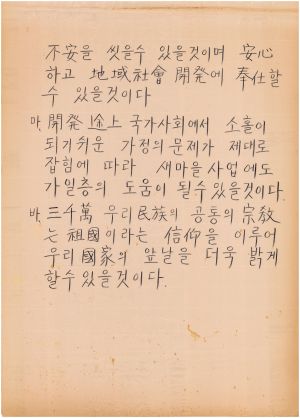 不安을 씻을수 있을것이며 安心
하고 地域社會 開發에 奉仕할
수 있을것이다
마. 開發途上 국가사회에서 소홀이
되기쉬운 가정의문제가 제대로
잡힘에 따라 새마을사업에도
가일층의 도움이 될수있을것이다.
바. 三千萬 우리民族의 공통의 宗敎
는 祖國이라는 信仰을 이루어
우리國家의 앞날을 더욱 밝게
할수있을것이다.